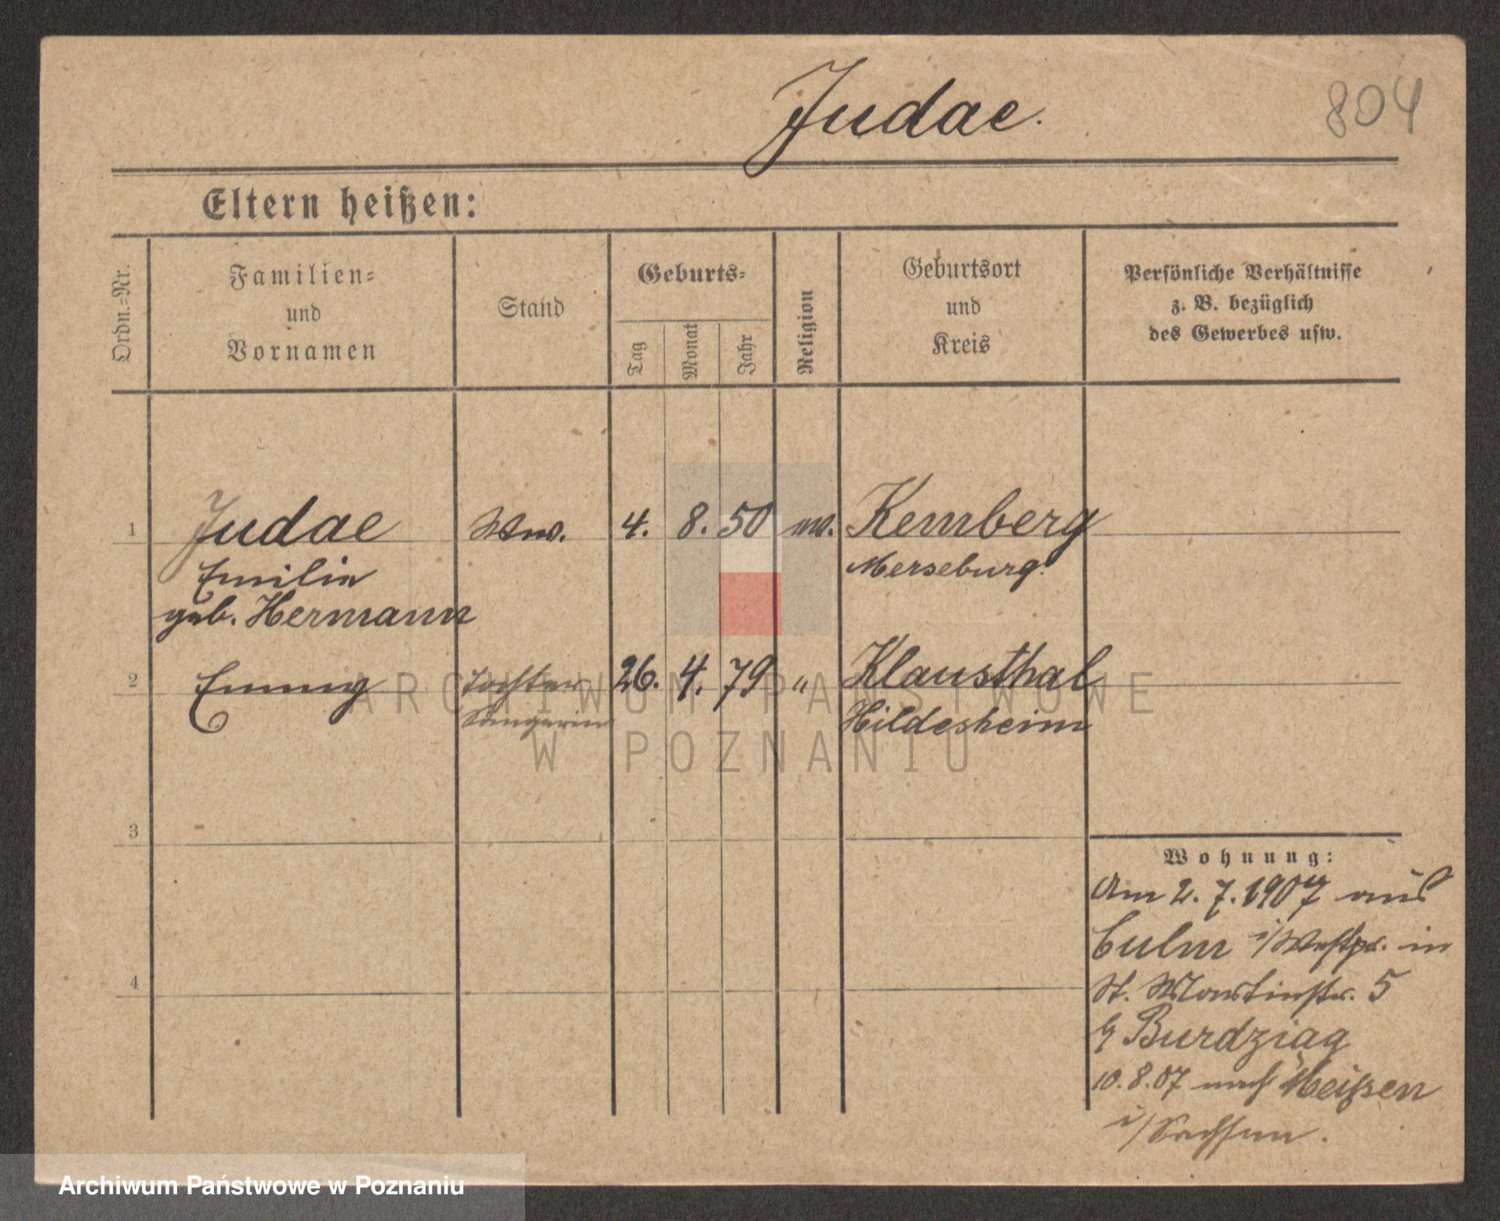 Judae.
804
Eltern heißen:
Ordn.-Nr.
Familien-
und
Vornamen
Stand
Geburts-
Tag
Monat
Jahr
Religion
Geburtsort
und
Kreis
Persönliche Verhältnisse
z. B. bezüglich
des Gewerbes usw.
1 Judae Ww. 4. 8. 50 Kemberg
Emilie Merseburg
geb. Hermann
2 Emmy Tochter 26. 4. 79 " Klausthal
Sängerin Hildesheim
3
4
Wohnung:
Am 2. 7. 1907 aus
Culm i/Westpr. in
St. Martinstr. 5
Burdziag
10. 8. 07 nach Meißen
i/Sachsen.
ARCHIWUM PAŃSTWOWE
W POZNANIU
Archiwum Państwowe w Poznaniu